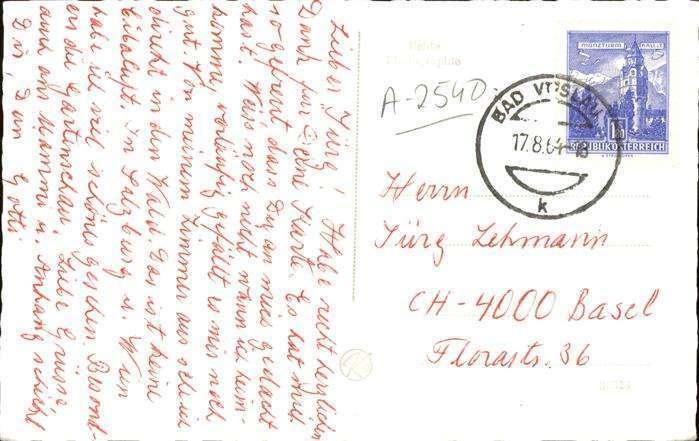 Lieber Jürg! Habe recht herzlichen
Dank für Deine Karte. Es hat mich
so gefreut dass Du an mich gedacht
hast. Weiss noch nicht wann ich heim-
komme, vorläufig gefällt es mir noch
gut. Von meinem Zimmer aus sehe
direkt in den Wald. Das ist keine
In Salzburg u. Wien
habe ich viel schönes gesehen
vor die Gartenschau. Liebe Grüsse
auch an Mammi u. Anhang schickt
Dir, Dein Gotti
A-2540
BAD VÖSLAU
17.8.64-18
k
MÜNZTURM HALL I. T.
REPUBLIK ÖSTERREICH
Echte
Photographie
Herrn
Jürg Lehmann
CH-4000 Basel
Florastr. 36